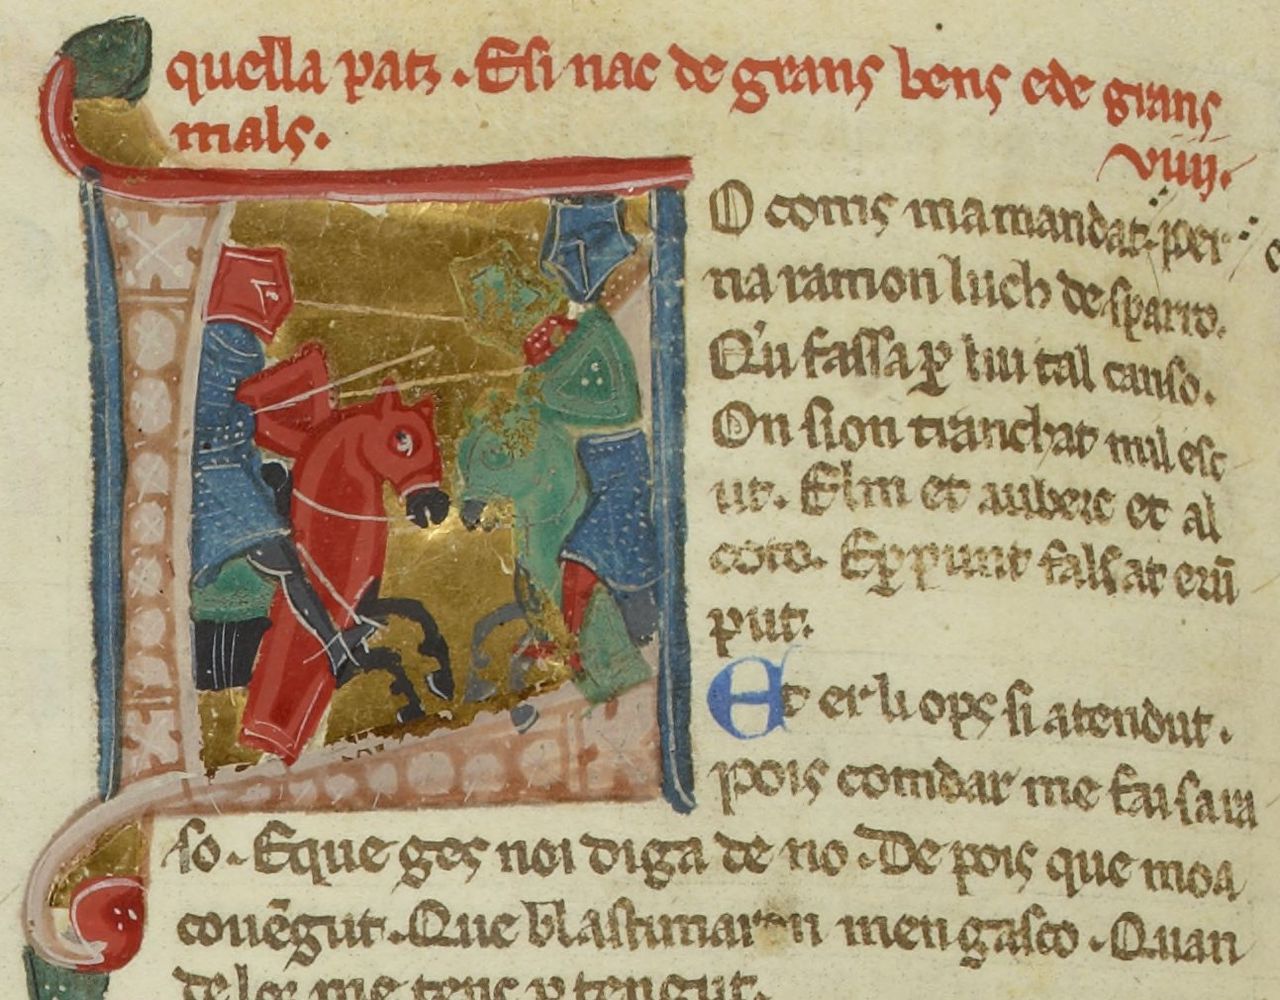 quella patz. Esi nac de grans bens ede grans
mals.
viiij.
O coms mamandat. per
na ramon luch desparro.
Qu fassa ꝑ lui tal canso.
On sion trenchat mil esc
ut. Elm et auberc et al
coto. Eꝑpunt falsat erū
put.
Et er li ops si atendut.
pois comdar me fai sa ra
so. Eque ges noi diga de no. De pois que moa
couēgut. Que blastimaran men gasco. Quan
de lor me tenc ꝑ tengut.